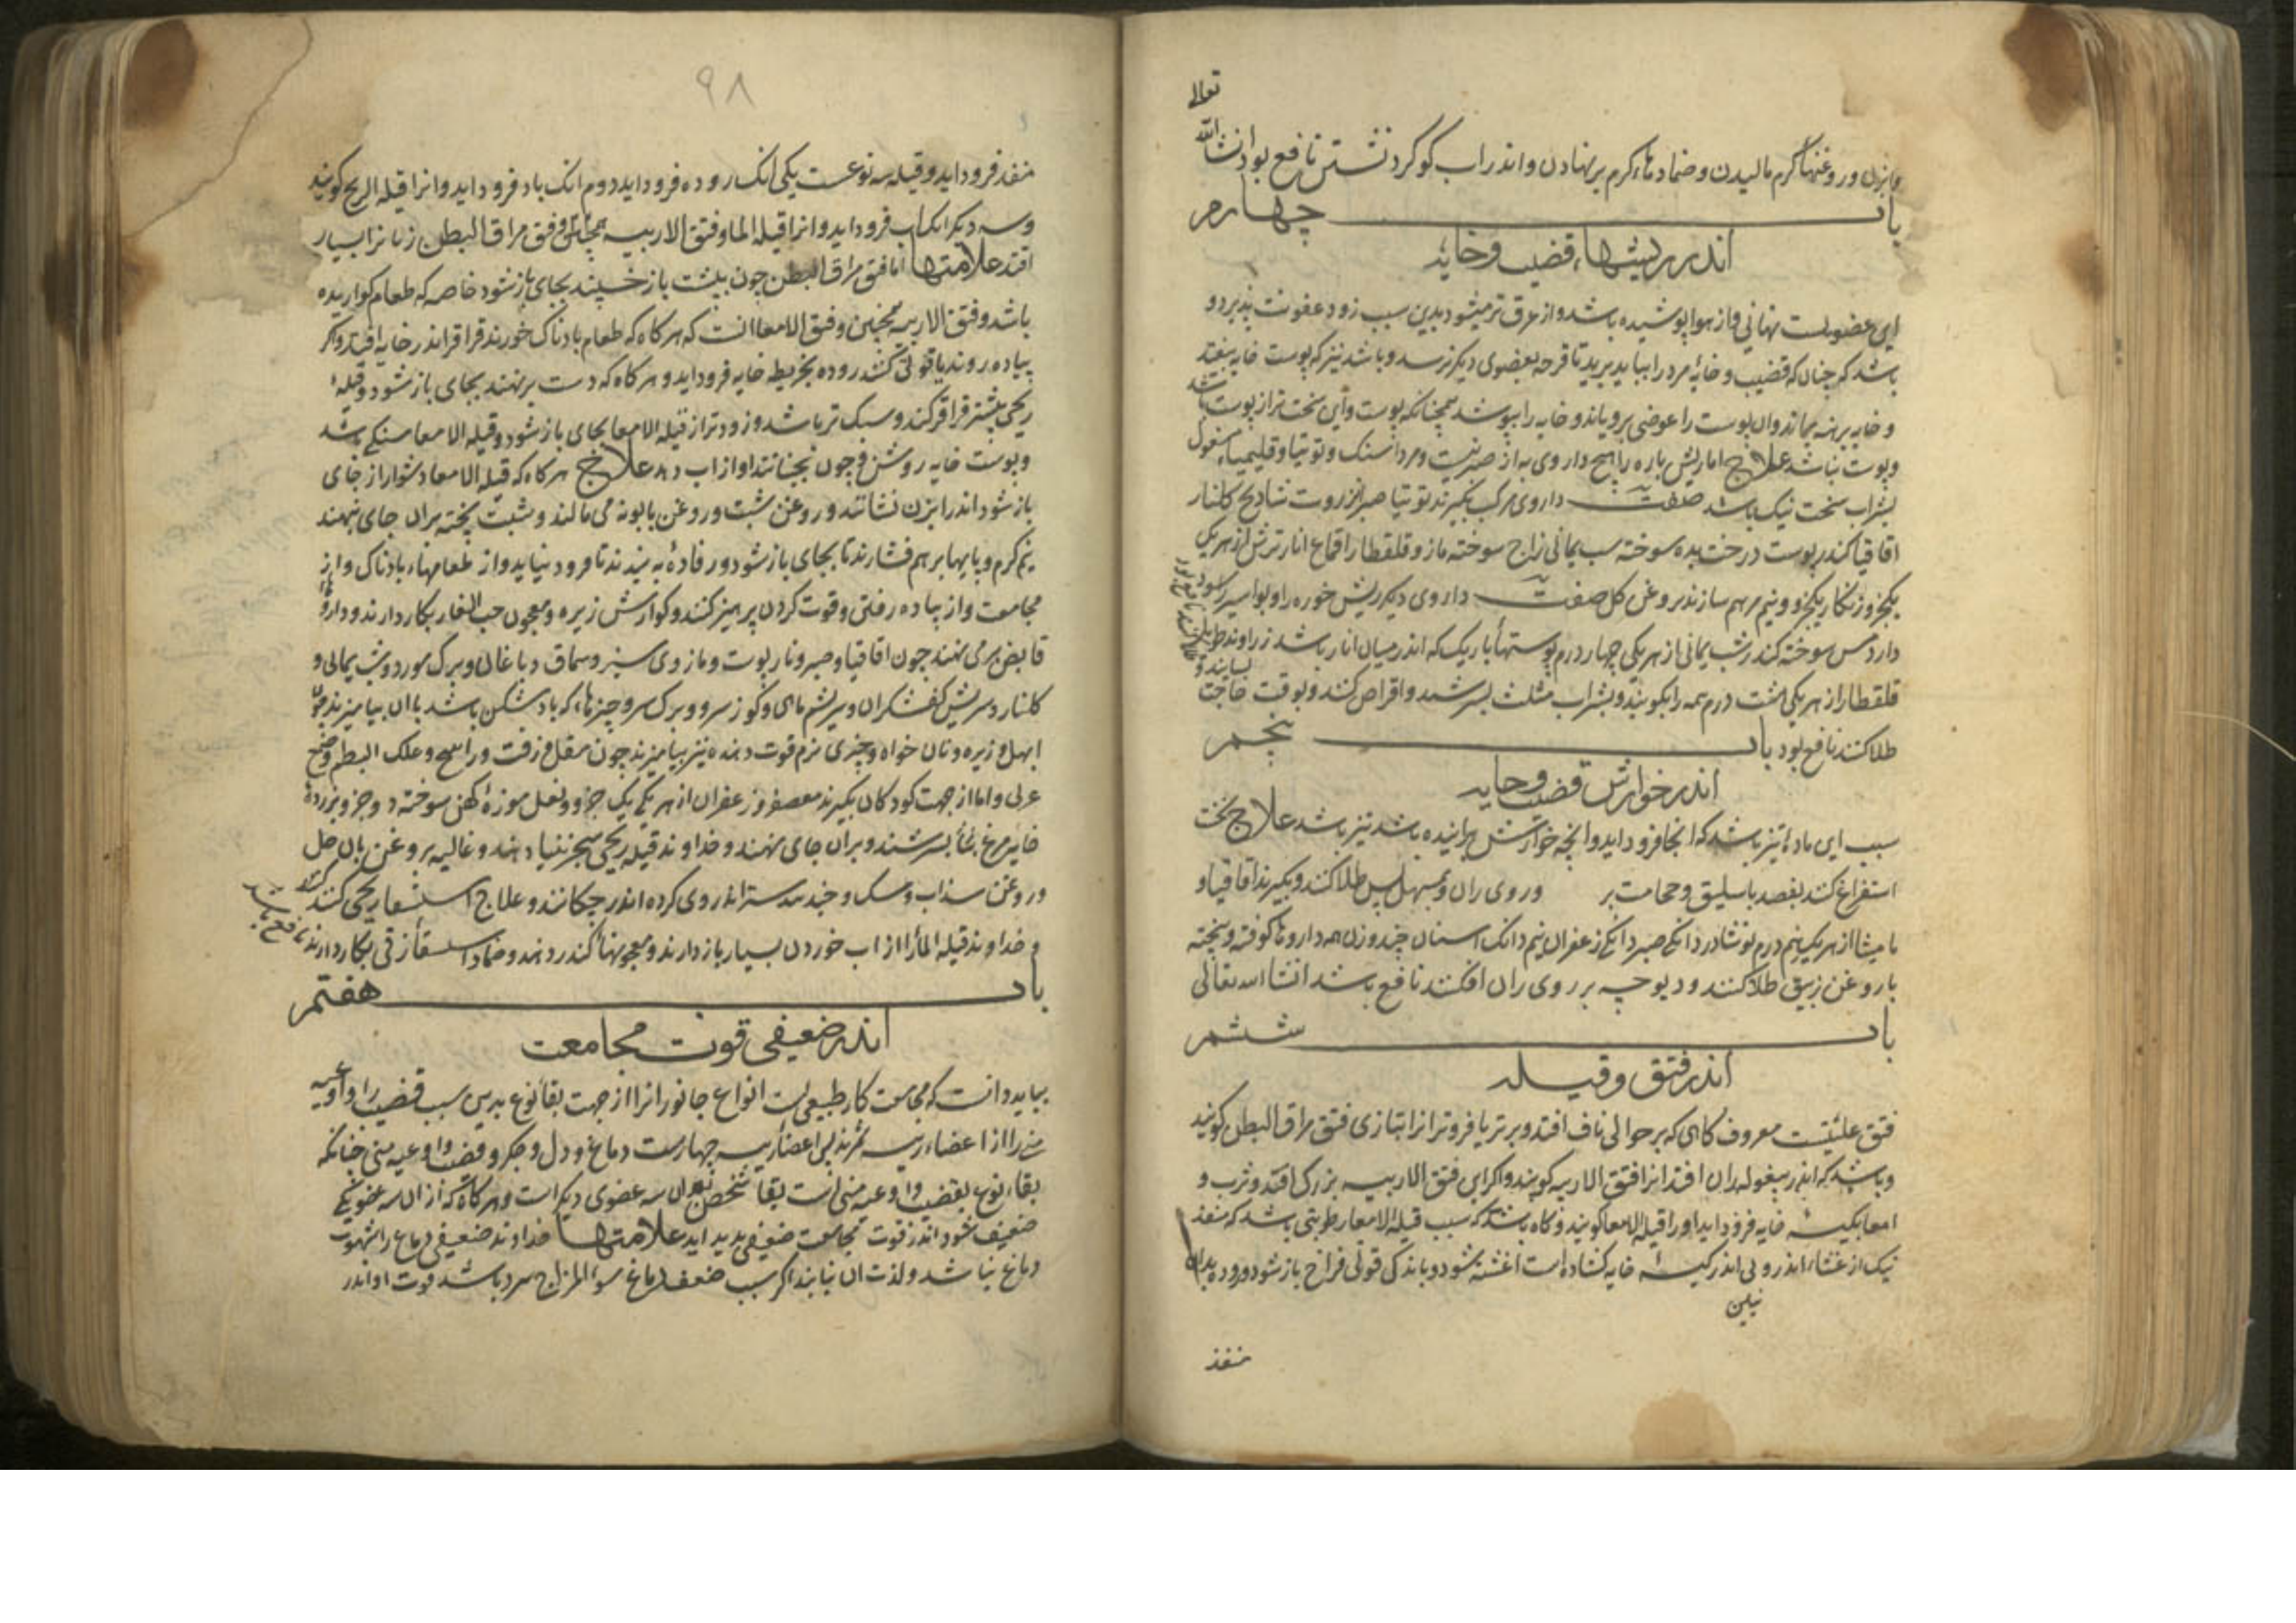 تعالی
و ابزن و روغنهاء کرم مالیدن و ضمادهاء کرم برنهادن و اندر اب کوکرد نشستن نافع بود انشاالله
باب چهارم
اندر ریشهاء قضیب و خایه
این عضویست نهانی و از هوا پوشیده باشد و از عرق تر میشود بدین سبب زود عفونت پذیرد و
باشد که چنان که قضیب و خایۀ مرد را بباید برید تا قرحه بعضوی دیکر نرسد و باشد نیز که پوست خایه بیفتد
و خایه برهنه بماند و ان پوست را عوضی برویاند و خایه را بپوشد همچنانکه پوست و این سخت تر از پوست باشد
و پوست نباشد علاج اما ریش تازه را هیچ داروی به از صبر نیست و مرداسنک و توتیا و قلیمیاء مغسول
بشراب سخت نیک باشد صفت داروی مرکب بکیرند توتیا صبر انزروت شادنج کلنار
اقاقیا کندر پوست درخت سوخته شب یمانی زاج سوخته مازو قلقطار اقماع انار ترش از هر یکی
یکجزو زنکار یکجزو و نیم مرهم سازند بروغن کل صفت داروی دیکر ریش خوره را و بواسیر را سود
دارد مس سوخته کندر شب یمانی از هر یکی چهار درم پوستهاء باریک که اندر میان انار باشد زراوند طویل
قلقطار از هر یکی هشت درم همه را بکوبند و بشراب مثلث بسرشند و اقراص کنند و بوقت حاجت بسایند و
طلا کنند نافع بود باب پنجم
اندر خوارش قضیب و خایه
سبب این مادۀ تیز باشد که انجا فرود اید و انچه خوارش براینده باشد تیز باشد علاج نخست
استفراغ کنند بفصد باسلیق و حجامت بر وروی ران و بمسهل پس طلا کنند و بکیرند اقاقیا و
مامیثا از هر یک نیم درم نوشادر دانکی صبر دانکی زعفران نیم دانک اشنان چند وزن همه داروها کوفته و بیخته
با روغن زیبق طلا کنند و دیوچه بر روی ران افکنند نافع باشد انشا الله تعالی
باب ششم
اندر فتق و قیله
فتق علتیست معروف کاهی که بر حوالی ناف افتد و برتر یا فروتر انرا بتازی فتق مراق البطن کویند
و باشد که اندر بیغوله ران افتد انرا فتق الاربیه کویند و اکر این فتق الاربیه بزرک افتد و ثرب و
امعا بکیسۀ خایه فرود اید او را قیلة الامعا کویند و کاه باشد که سبب قیلة الامعا رطوبتی باشد که منفذ
نیک از غشاء اندرونی اندر کیسۀ خایه کشاده است اغشته شود و باندکی قوتی فراخ باز شود و روده بدان
منفذ
۹۸
منفذ فرود اید و قیله سه نوعست یکی انک روده فرود اید دوم انک باد فرود اید و انرا قیلة الریح کویند
و سه دیکر انک اب فرود اید و انرا قیلة الما و فتق الاربیه همچنان و فتق مراق البطن زنانرا بسیار
افتد علامتها اما فتق مراق البطن چون بپشت باز خسپند بجای باز شود خاصه که طعام کواریده
باشد و فتق الاربیه همچنین و فتق الامعا انست که هر کاه که طعام بادناک خورند قراقر اندر خایه افتد و اکر
پیاده روند یا قوتی کنند روده بخریطه خایه فرود اید و هر کاه که دست برنهند بجای باز شود و قیلۀ
ریحی بیشتر قراقر کند و سبک تر باشد و زودتر از قیلة الامعا بجای باز شود و قیلة الامعا سنکی باشد
و پوست خایه روشن و چون بجنبانند اواز اب دهد علاج هر کاه که قیلة الامعا دشوار از جای
باز شود اندر ابزن نشانند و روغن شبت و روغن بابونه می مالند و شبت پخته بران جای نهند
نیم کرم و پایها بر هم فشارند تا بجای باز شود و رفادۀ به بندند تا فرود نیاید و از طعامهاء بادناک و از
مجامعت و از پیاده رفتن و قوت کردن پرهیز کنند و کوارش زیره و معجون حب الغار بکار دارند و داروهاء
قابض برمی نهند چون اقاقیا و صبر و نار پوست و مازوی سبز و سماق دباغان و برک مورد و شب یمانی و
کلنار و سریش کفشکران و سریشم ماهی و کوز سرو و برک سرو و چیزهاء که باد شکن باشد با ان بیامیزند چون
ابهل و زیره و نان خواه و چیزی نرم قوت دهنده نیز بیامیزند چون مقل و زفت و راتینج و علک البطم و صمغ
عربی و اما از جهت کودکان بکیرند معصفر و زعفران از هر یکی یک جزو و نعل موزۀ کهن سوخته دو جزو و بزردۀ
خایه مرغ بسرشند و بران جای نهند و خداوند قیلۀ ریحی را سجزنیا دهند و غالیه بروغن بان حل کنند
و روغن سداب و مشک و جند بیدستر اندر وی کرده اندر چکانند و علاج استسقاء ریحی کنند
و خداوند قیلة الماء را از اب خوردن بسیار باز دارند و معجونهاء کندر دهند و ضماد استسقاء زقی بکار دارند نافع باشد
باب هفتم
اندر ضعیفی قوت مجامعت
بباید دانست که مجامعت کار طبیعی است انواع جانورانرا از جهت بقاء نوع بدین سبب قضیب را و اوعیه
منی را از اعضاء رییسه شمرند پس اعضاء رییسه چهارست دماغ و دل و جکر و قضیب و اوعیه منی چنانکه
بقاء نوع بقضیب و اوعیه منی است بقاء شخص بدان سه عضوی دیکر است و هر کاه که از ان سه عضو یکی
ضعیف شود اندر قوت مجامعت ضعیفی پدید اید علامتها خداوند ضعیفی دماغ را شهوت
دماغ نباشد و لذت ان نیابند اکر سبب ضعف دماغ سوء المزاج سرد باشد قوت او اندر